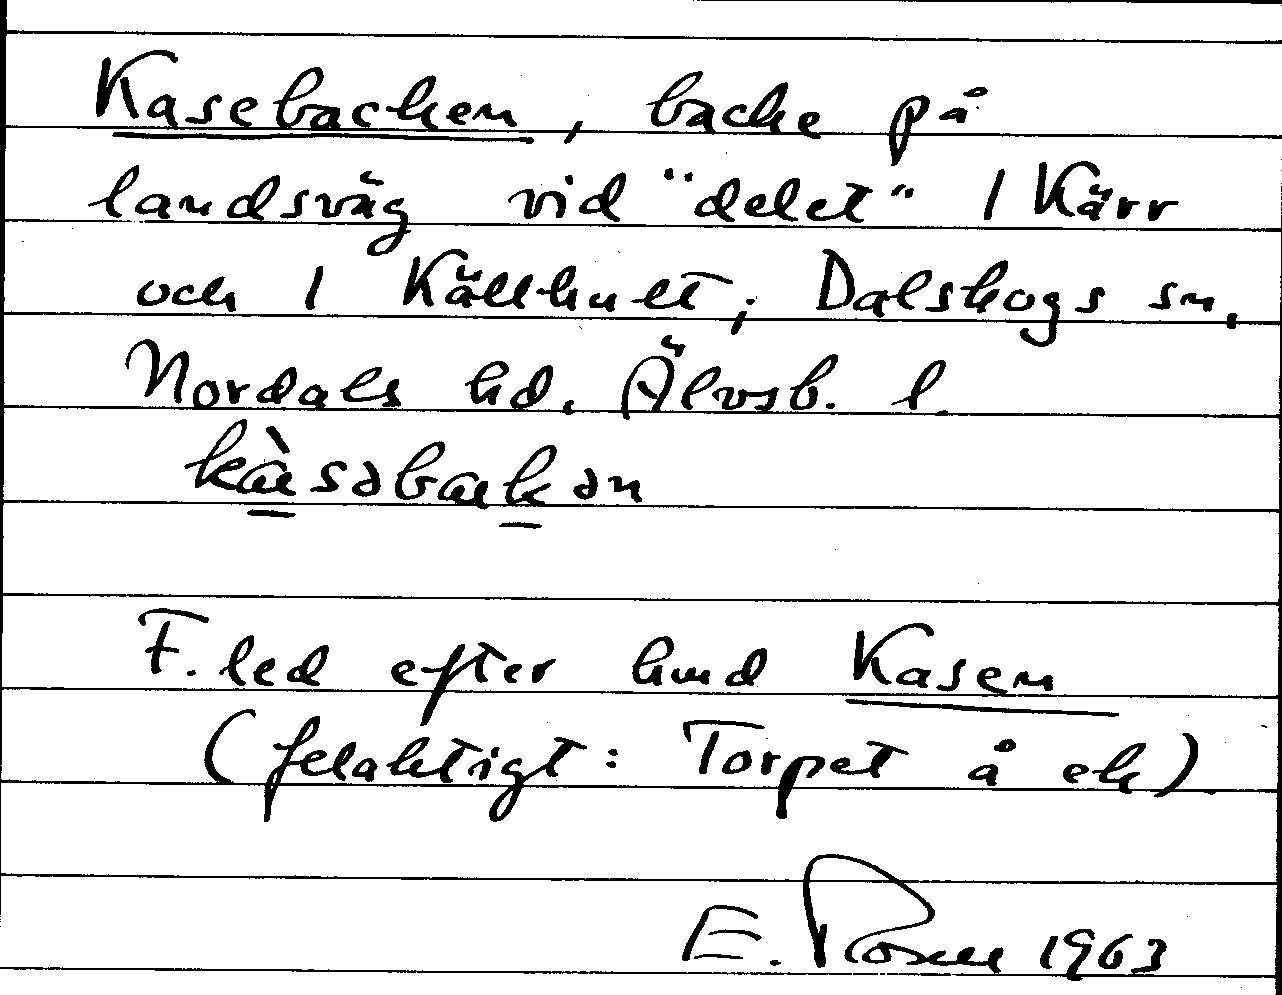 Kasebacken, backe på
landsväg vid "delet" 1 Kärr
och 1 Källhult; Dalskogs sn,
Nordals hd. Älvsb. l.
kàsəbakən
F. led efter hmd Kasen
(felaktigt: Torpet å ek)
E. Rosell 1963